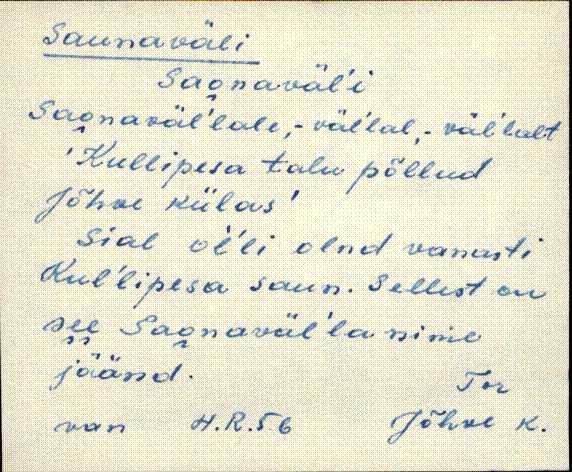 Saunaväli
Sao̯naväl'i
Sao̯naväl'lale, -väl'lal, -väl'lalt
'Kullipesa talu põllud
Jõhve külas'
Sial ol'li olnd vanasti
Kul'lipesa saun. Sellest on
see Sao̯naväl'la nime
jäänd.
Tor
van H.R.56 Jõhve k.